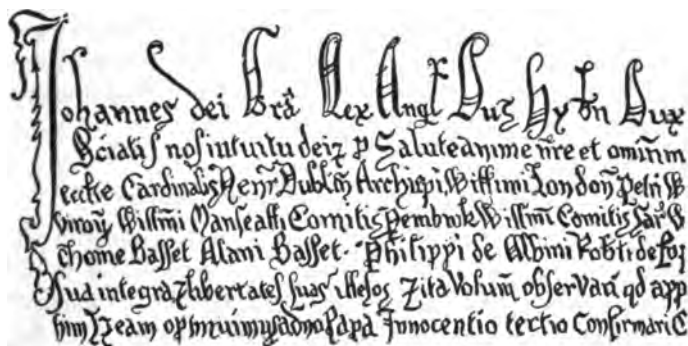 Johannes dei Gra Rex Angl Dus Hybn Dux
Sciatis nos intuitu dei z p Salute anime nre et omnim
eccłie Cardinalis Henr Dublin Archiepi Willimi London Petri W
Willmi Marscalli Comitis Pembrok Willmi Comitis Sar W
Thome Basset Alani Basset. Philippi de Albini Robti de
Sua integra z libertates suas illesas z ita Volum observari qd app
eam optinuimus a dno Papa Innocentio tertio Confirmari